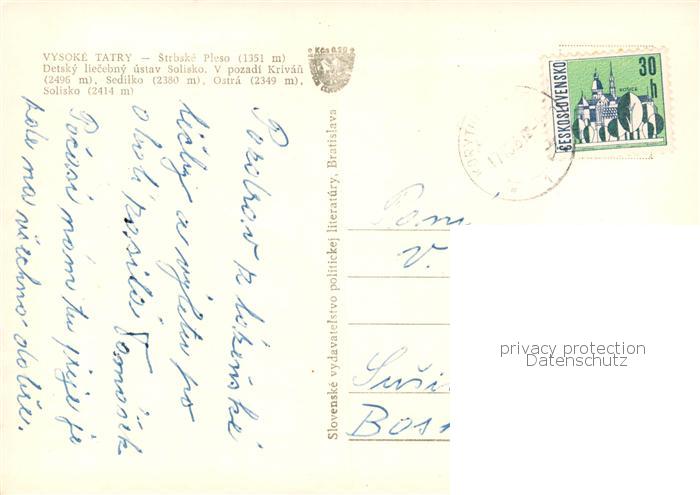 VYSOKÉ TATRY — Štrbské Pleso (1351 m)
Detský liečebný ústav Solisko. V pozadí Kriváň
(2496 m), Sedilko (2380 m), Ostrá (2349 m),
Solisko (2414 m)
Kčs 0.50
Pozdrav z lázeňské
léčby a výletu po
okolí posílá Tomášek
Počasí nám tu přeje je
zde na všechno dobře.
Slovenské vydavateľstvo politickej literatúry, Bratislava
ČESKOSLOVENSKO
30 h
KOŠICE
V.
privacy protection
Datenschutz